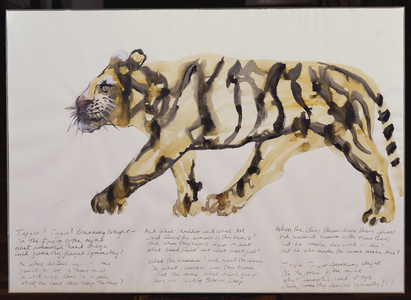 Tyger! Tyger! burning bright –
In the forests of the night
What immortal hand or eye
could frame thy fearful symmetry?
In what distant deeps or skies
Burnt the fire of thine eyes?
On what wings dare he aspire
What the hand dare seize the fire?
And what shoulder and what art
could twist the sinews of thy heart?
And when thy heart began to beat
What dread hand and what dread feet?
What the hammer? and what the chain
In what furnace was thy brain
What the anvil? What dread grasp
Dare its deadly terrors clasp
When the stars threw down their spears
And water'd heaven with their tears
Did he smile his work to see
Did he who made the lamb make thee?
Tyger Tyger burning bright
In the forests of the night
What immortal hand or eye
Dare frame thy fearful symmetry???